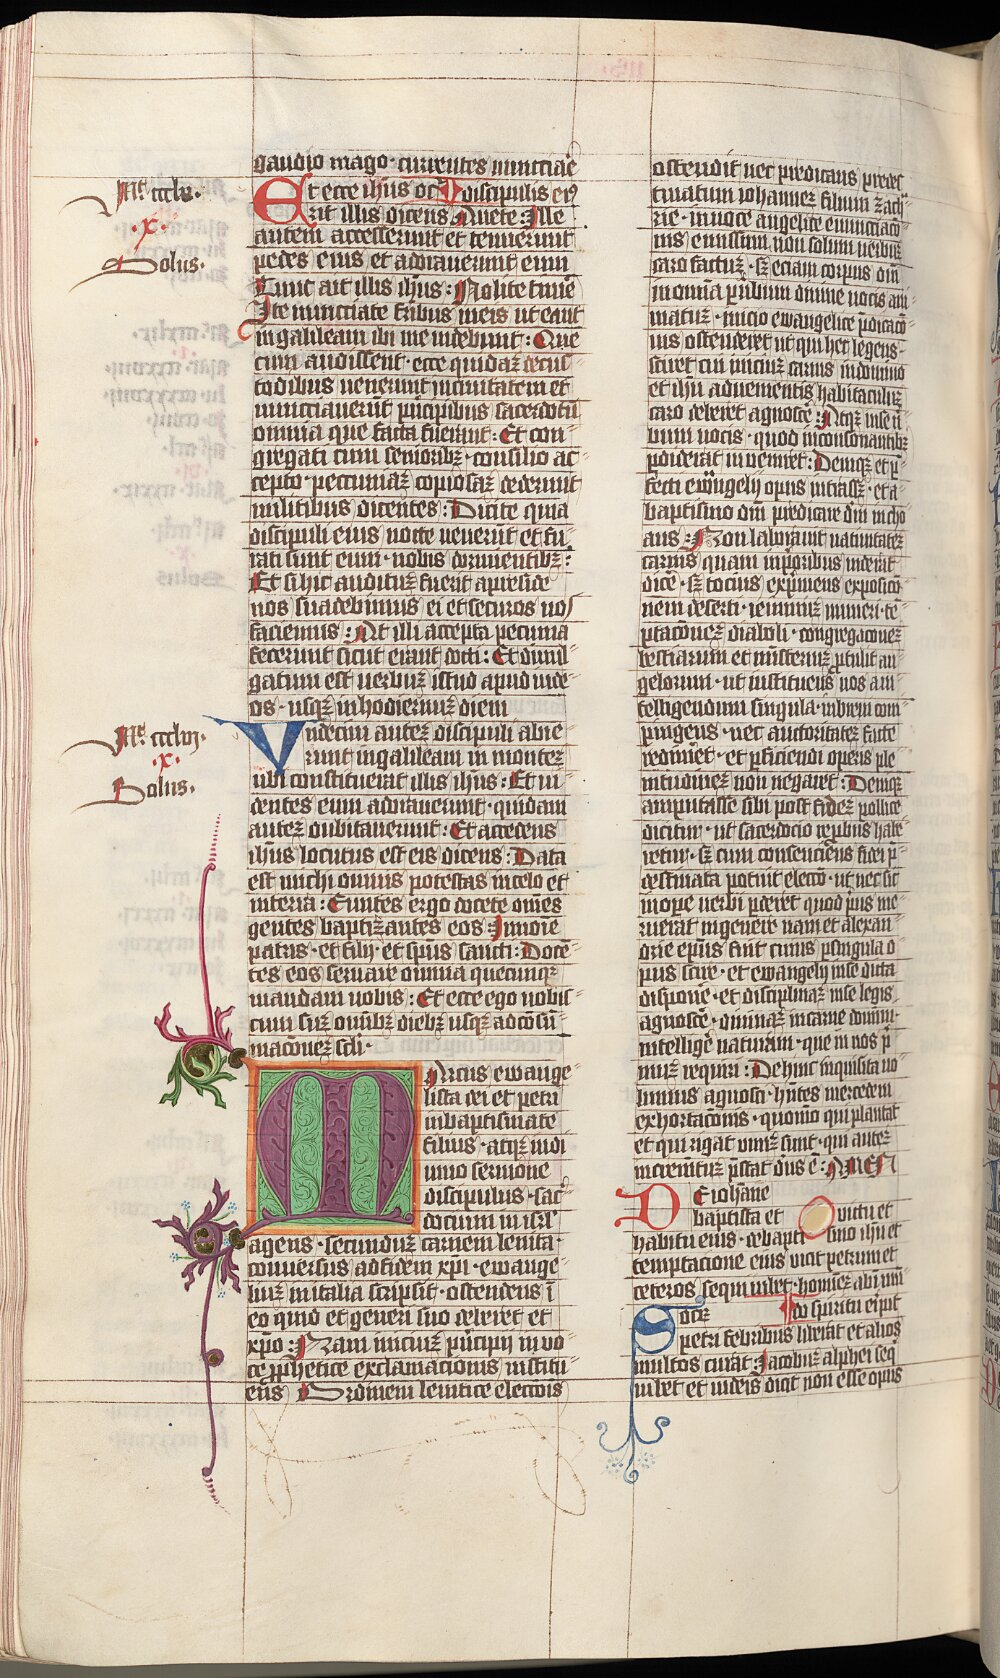 gaudio mago· currentes nuncciare
Et ecce ih̄us occ discipulis eiꝰ
rit illis dicens Auete: Ille
autem accesserunt et tenuerunt
pedes eius et adorauerunt eum
Tunc ait illis ih̄us: Nolite timē
Ite nunciate fr̄ibus meis ut eant
in galileam ibi me uidebunt: Que
cum audissent· ecce quidaꝫ decus
todibus uenerunt in ciuitatem et
nuncciauerūt p̄ncipibus sacerdotū
omnia que facta fuerant: Et con
gregati cum senioribꝫ· consilio ac
cepto· pecuniaꝫ copiosaꝫ dederunt
militibus dicentes: Dicite quia
discipuli eius nocte uenerūt et fu
rati sunt eum· nobis dormientibꝫ:
Et si hic audituꝫ fuerit apreside
nos suadebimus ei et securos uos
faciemus: At illi accepta pecunia
fecerunt sicut erant docti: Et diuul
gatum est uerbuꝫ istud apud iude
os· usqꝫ in hodiernuꝫ diem
Mͬ. ccclv.
·x·
Solus.
Vndecim auteꝫ discipuli abie
runt in galileam in monteꝫ
ubi constituerat illis ih̄us: Et ui
dentes eum adorauerunt· quidam
auteꝫ dubitauerunt: Et accedens
ih̄us locutus est eis dicens: Data
est michi omnis potestas in celo et
in terra: Euntes ergo docete om̄es
gentes baptizantes eos In noīe
patris· et filij· et sp̄us sancti: Docē
tes eos seruare omnia quecunqꝫ
mandaui uobis: Et ecce ego uobis
cum suꝫ om̄ibꝫ diebꝫ usqꝫ ad cōsū
mac̄oneꝫ scl̄i·
Mͬ. ccclvj.
·x·
Solus.
Marcus ewange
lista dei et petri
in baptismate
filius· atqꝫ in di
uino sermone
discipulus· sac
docium in isrl̄
agens· secunduꝫ carnem leuita·
conuersus ad fidem xp̄i· ewange
liuꝫ in italia scripsit· ostendens ī
eo quid et generi suo deberet et
xp̄o: Nam iniciuꝫ p̄ncipij in uo
ce ꝓphetice exclamacionis institu
ens Ordinem leuitice electōis
ostendit ut predicans predes
tinatum iohanneꝫ filium zach
rie· in uoce angelice enunciaci
nis emissum non solum uerbuꝫ
caro factuꝫ· sꝫ eciam corpus dn̄i
in omīa p̄ uerbum diuine uocis ani
matuꝫ· inicio ewangelice p̄dicacō
nis ostenderet ut qui hec legens·
sciret cui iniciuꝫ carnis in domino
et ih̄u aduenientis habitaculuꝫ
caro deberet agnosce: Atqꝫ in se ū
bum uocis· quod in consonantibꝫ
ꝑdiderat inueniret: Deniqꝫ et ꝑ
fecti ewangelij opus intrasꝫ· et a
baptismo dn̄i predicare dn̄i incho
ans: Non laborauit natiuitateꝫ
carnis quam in p̄oribus uiderat
dice· sꝫ tocius exp̄mens exposicō
nem deserti· ieiuniuꝫ numeri· tē
ptac̄oneꝫ diaboli· congregacoeꝫ
bestiarum et misteriuꝫ ꝓtulit an
gelorum· ut instituens nos ad in
telligendum singula· in breui com
pingens· nec auctoritateꝫ facte
rei demeret· et ꝑficiendi operis ple
nitudineꝫ non negaret: Deniqꝫ
amputasse sibi post fideꝫ pollice
dicitur· ut sacerdocio reprobus habe
retur· sꝫ cum consenciens fidei p̄
destinata potuit elecc̄o· ut nec sic
in ope uerbi ꝑderet quod p̄us me
ruerat in genere nam et alexan
drie ep̄us fuit cuius ꝑ singula o
pus scire· et ewangelij in se dicta
dispone· et disciplinaꝫ in se legis
agnosce· diuinaꝫ in carne domini·
intellige naturam· que in nos p̄
muꝫ requiri: Dehinc inquisita uo
lumus agnosci· hn̄tes mercedem
exhortacōnis· quonīa qui plantat
et qui rigat unuꝫ sunt· qui auteꝫ
incrementuꝫ p̄stat deus ē: Amen
De ioh̄ane
baptista et uictu et
habitu eius· de bapti smo ih̄u et
temptacione eius dicit petrum et
ceteros sequi iubet· homineꝫ ab inmu
do spiritu eripit
Socrꝫ
petri febribus liberat et alios
multos curat: Jacobuꝫ alphei seq̄
iubet et iudeis dicit non esse opus